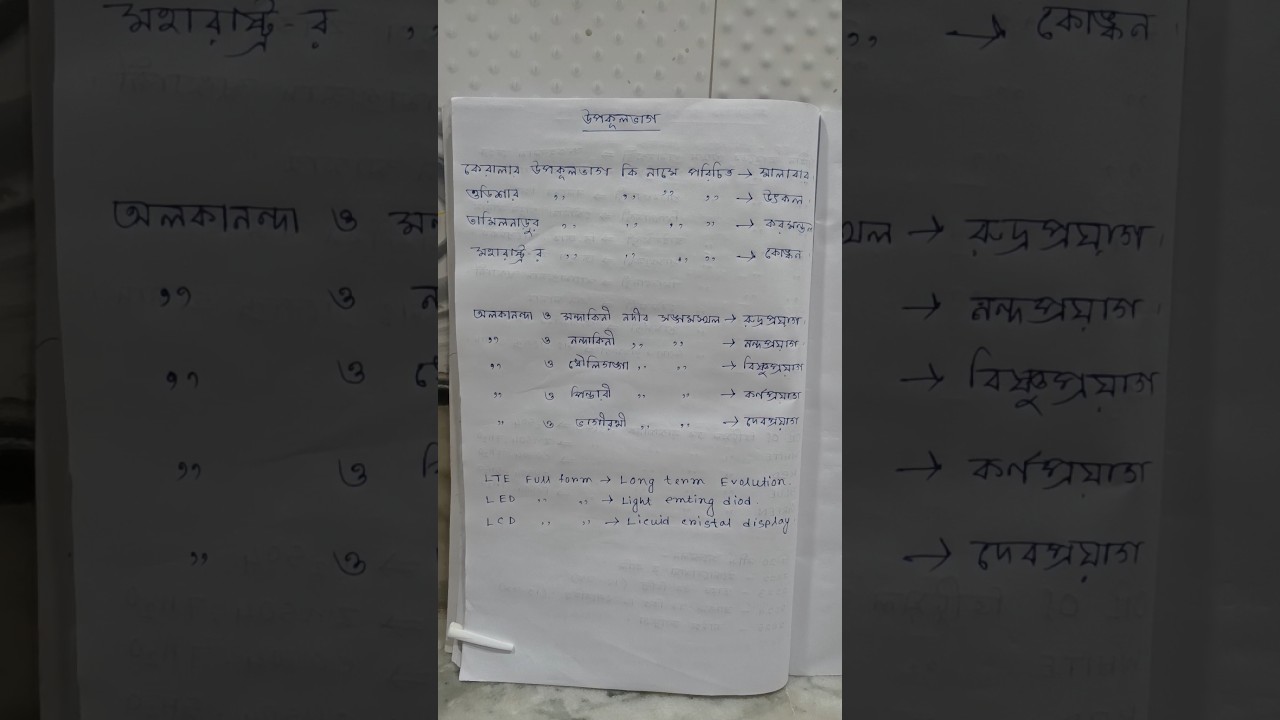 উপকূলভাগ
কেরালার উপকূলভাগ কি নামে পরিচিত → মালাবার
ওড়িশার ,, ,, ,, ,, → উৎকল
তামিলনাড়ুর ,, ,, ,, ,, → করমন্ডল
মহারাস্ট্র-র ,, ,, ,, ,, → কোঙ্কন
অলকানন্দা ও মন্দাকিনী নদীর সঙ্গমস্থল → রুদ্রপ্রয়াগ
,, ও নন্দাকিনী ,, ,, → নন্দপ্রয়াগ
,, ও ধৌলিগঙ্গা ,, ,, → বিষ্ণুপ্রয়াগ
,, ও পিন্ডারী ,, ,, → কর্ণপ্রয়াগ
,, ও ভাগীরথী ,, ,, → দেবপ্রয়াগ
LTE Full form → Long term Evolution.
LED ,, ,, → Light emting diod.
LCD ,, ,, → Licuid cristal display